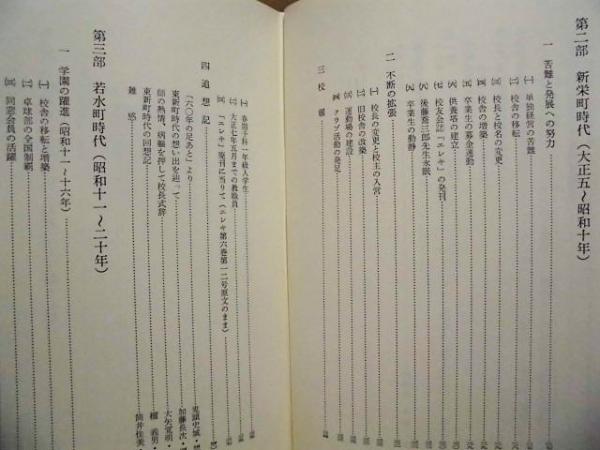 第二部 新栄町時代（大正五～昭和十年）
一 苦難と発展への努力
㈠ 単独経営の苦難
㈡ 校舎の移転
㈢ 校長と校名の変更
㈣ 校舎の増築
㈤ 卒業生の募金運動
㈥ 供養塔の建立
㈦ 校友会誌『エレキ』の発刊
㈧ 後藤喬三郎先生永眠
㈨ 卒業生の動静
二 不断の拡張
㈠ 校長の変更と校主の入営
㈡ 旧校舎の改築
㈢ 運動場の建設
㈣ クラブ活動の発足
三 校
㈠ 本
㈡ 大正七年五月までの教職員
㈢ 『エレキ』発刊に当りて（エレキ第六巻第一二号原文のまま）
四 追想記
『六〇年の足あと』より
東新町時代の想い出を辿って
師の熱情、病軀を押して校長式辞
東新町時代の回想記
雑感
加藤長次
大矢寛明
義男
筒井佳美
第三部 若水町時代（昭和十一～二十年）
一 学園の躍進（昭和十一～十六年）
㈠ 校舎の移転と増築
㈡ 卓球部の全国制覇
㈢ 同窓会員の活躍